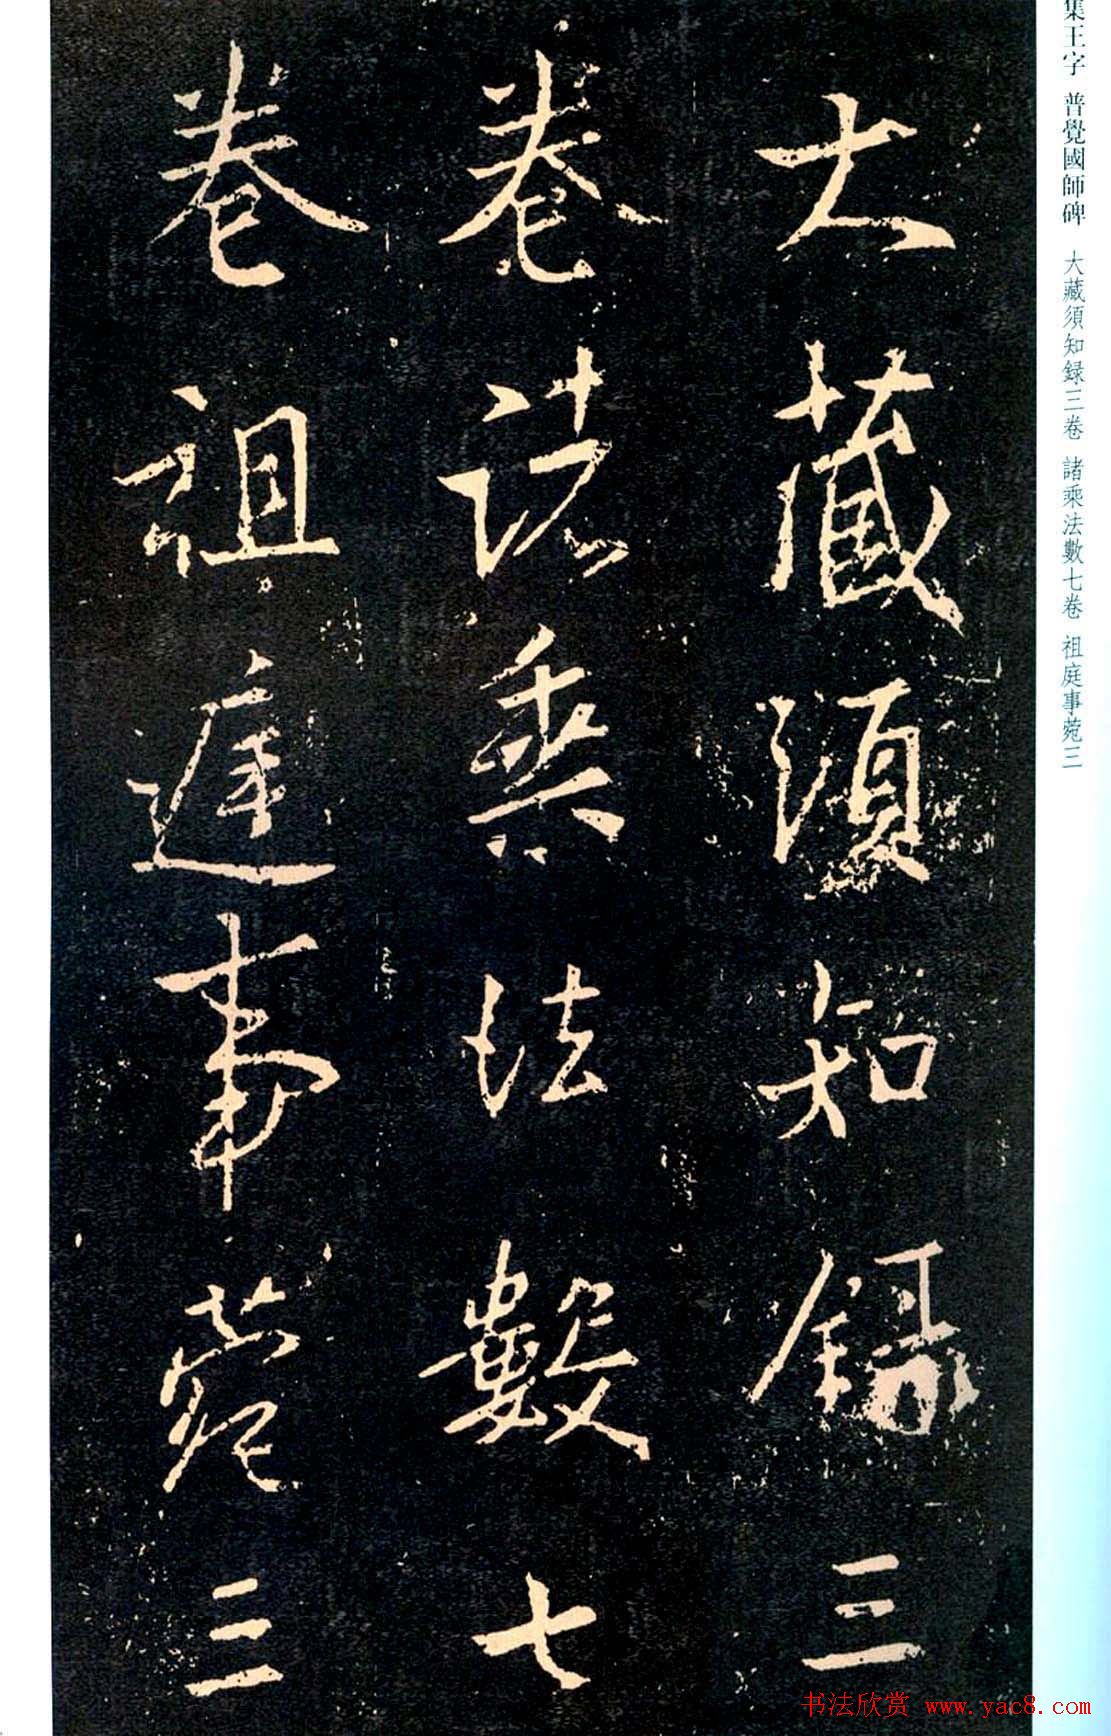 集王字 普覺國師碑 大藏須知録三卷 諸乘法數七卷 祖庭事菀三
大藏須知録三
卷諸乘法數七
卷祖庭事菀三
书法欣赏 www.yac8.com